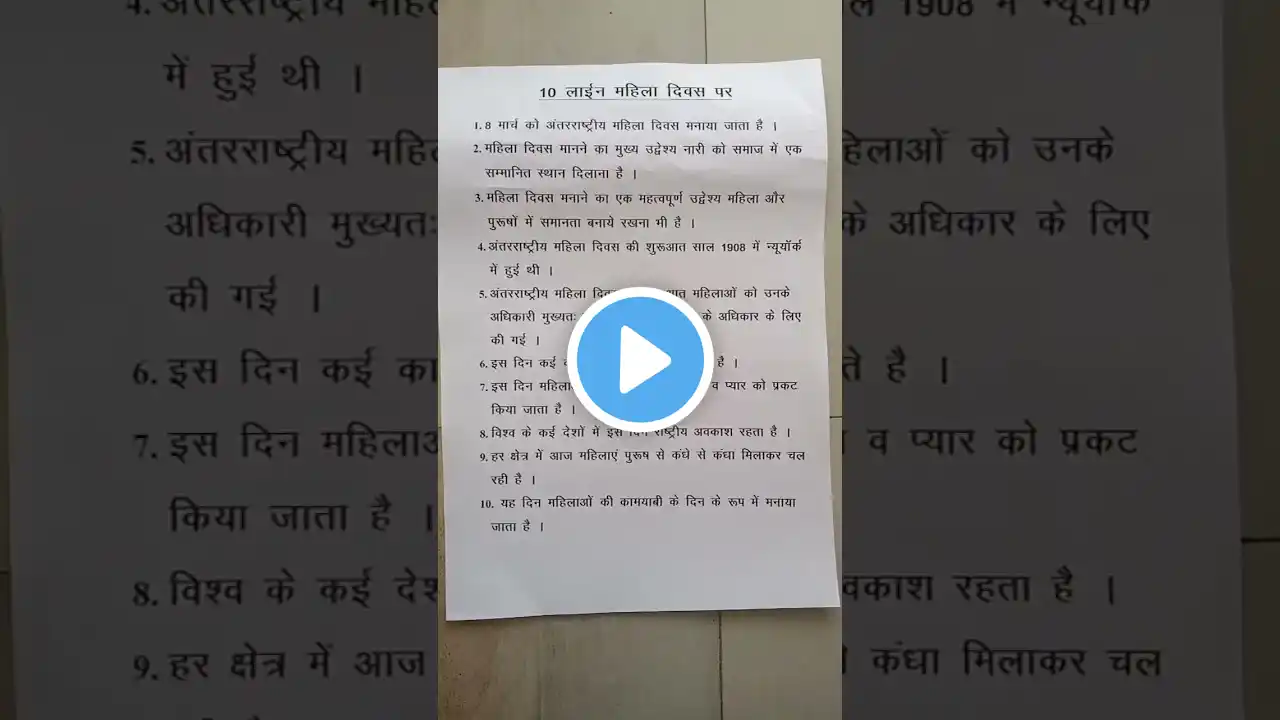 10 लाईन महिला दिवस पर
1. 8 मार्च को अंतरराष्ट्रीय महिला दिवस मनाया जाता है ।
2. महिला दिवस मानने का मुख्य उद्वेश्य नारी को समाज में एक
सम्मानित स्थान दिलाना है ।
3. महिला दिवस मनाने का एक महत्वपूर्ण उद्वेश्य महिला और
पुरूषों में समानता बनाये रखना भी है ।
4. अंतरराष्ट्रीय महिला दिवस की शुरूआत साल 1908 में न्यूयॉर्क
में हुई थी ।
5. अंतरराष्ट्रीय महिला महिलाओं को उनके
अधिकारी मुख्यतः के अधिकार के लिए
की गई ।
6. इस दिन कई है ।
7. इस दिन व प्यार को प्रकट
किया जाता है ।
8. विश्व के कई देशों में इस दिन राष्ट्रीय अवकाश रहता है ।
9. हर क्षेत्र में आज महिलाएं पुरूष से कंधे से कंधा मिलाकर चल
रही है ।
10. यह दिन महिलाओं की कामयाबी के दिन के रूप में मनाया
जाता है ।